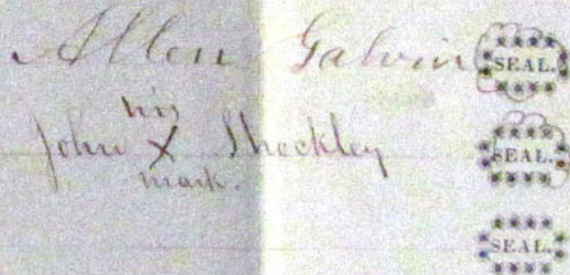 Allen Galvin SEAL.
his
John X Sheckley SEAL.
mark.
SEAL.